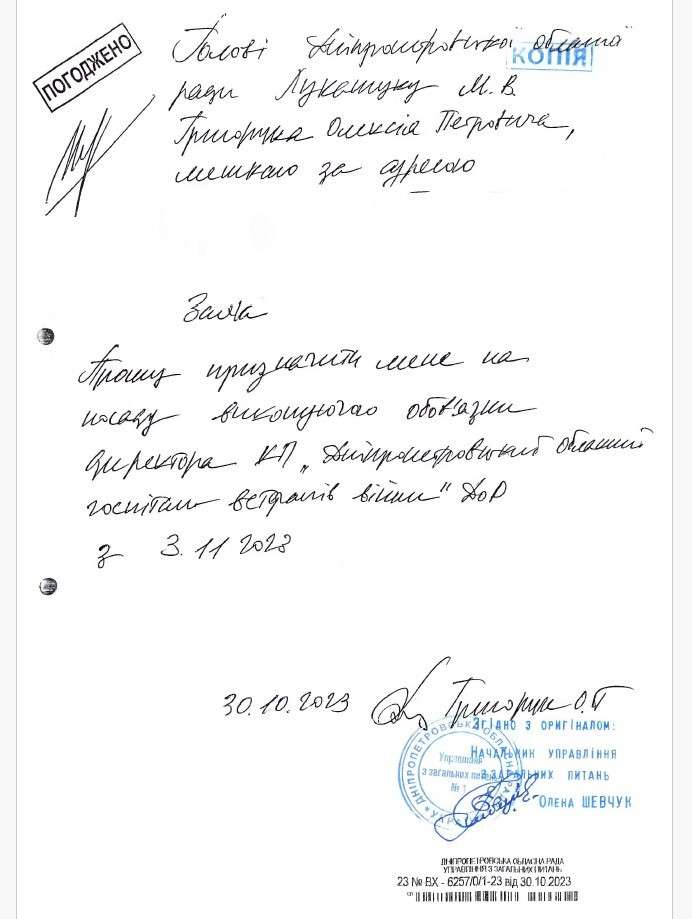 ПОГОДЖЕНО
Голові Дніпропетровської обласної
КОПІЯ
ради Лукашуку М. В.
Григорука Олексія Петровича,
мешкаю за адресою
Заява
Прошу призначити мене на
посаду виконуючого обов'язки
директора КП „Дніпропетровський обласний
госпіталь ветеранів війни" ДОР
з 3.11 2023
30.10.2023 Григорук О.П
Згідно з оригіналом:
Начальник управління
з загальних питань
Олена ШЕВЧУК
Управління
з загальних питань
№ 1
ДНІПРОПЕТРОВСЬКА ОБЛАСНА РАДА
УПРАВЛІННЯ З ЗАГАЛЬНИХ ПИТАНЬ
23 № ВХ - 6257/0/1-23 від 30.10.2023